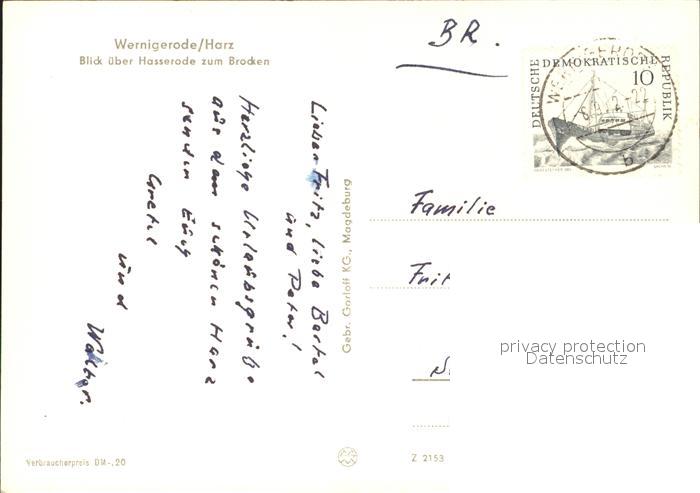 Wernigerode/Harz
Blick über Hasserode zum Brocken
BR.
DEUTSCHE DEMOKRATISCHE REPUBLIK
10
Lieber Fritz, liebe Bärbel
und Peter!
Herzliche Urlaubsgrüße
aus dem schönen Harz
senden Euch
Gretel
und
Walther.
Gebr. Garloff KG., Magdeburg
Familie
Frit
privacy protection
Datenschutz
Verbraucherpreis DM -,20
Z 2153